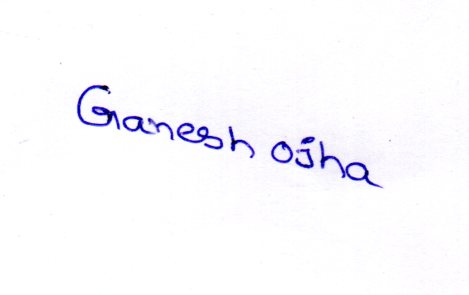 Ganesh ojha